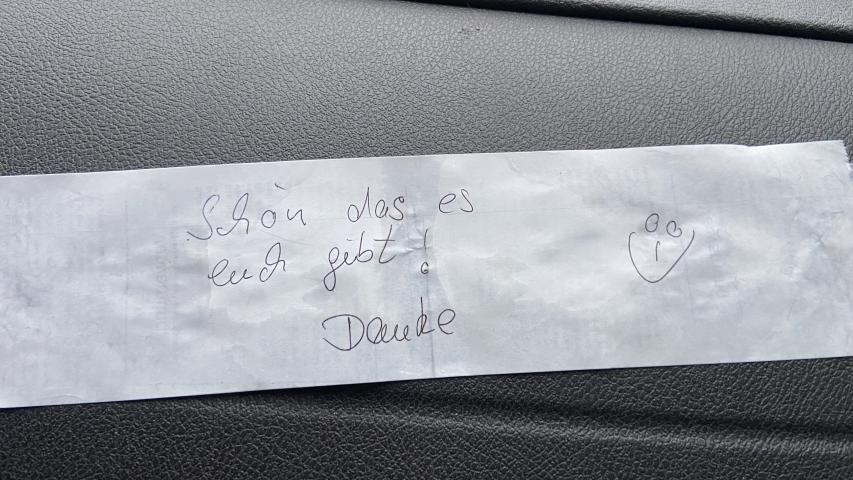 Schön das es
euch gibt!
Danke